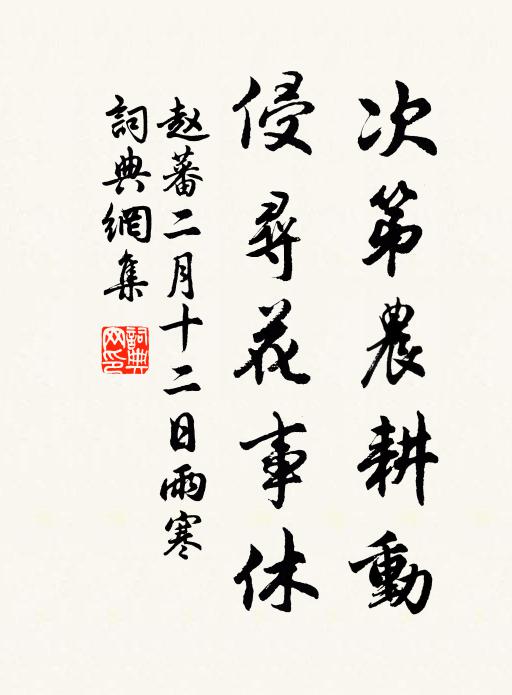 次第農耕動
侵尋花事休
赵蕃二月十二日雨寒
詞典網集
詞典网印